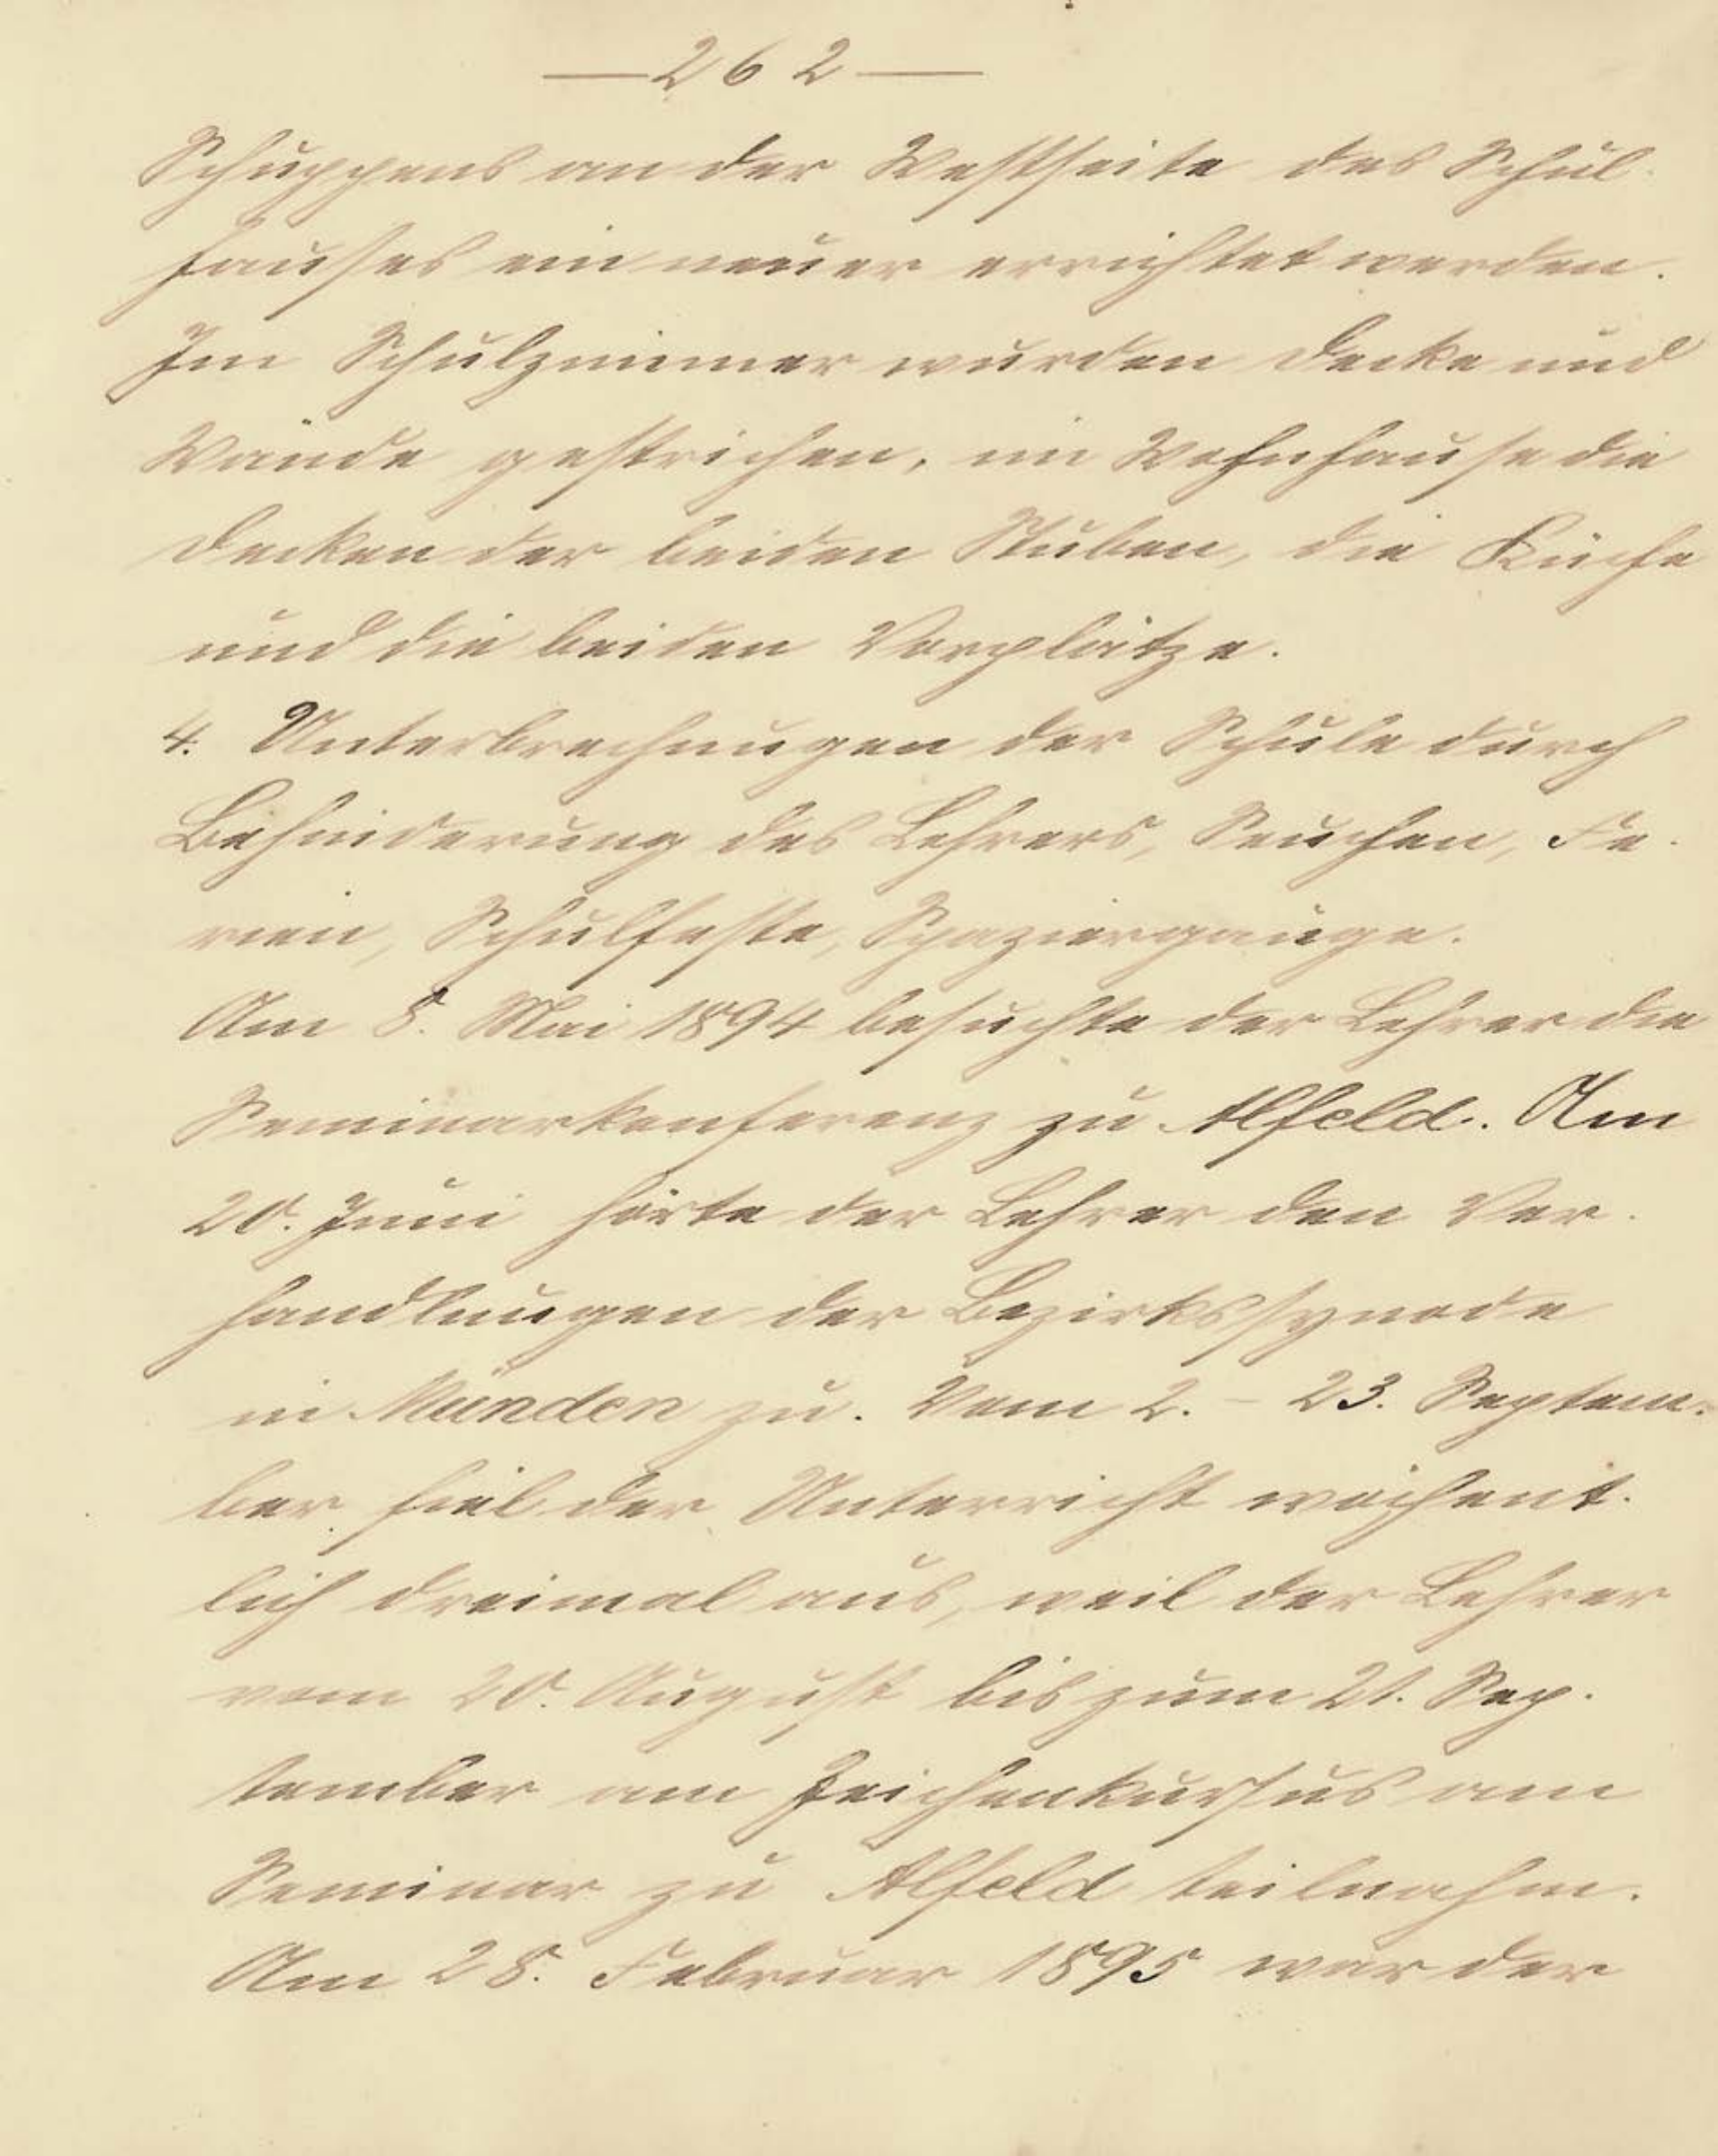 — 262 —
Schuppens an der Westseite des Schul-
hauses ein neuer errichtet werden.
Im Schulzimmer wurden Decke und
Wände gestrichen, im Wohnhause die
Decken der beiden Stuben, die Küche
und die beiden Vorplätze.
4. Unterbrechungen der Schule durch
Behinderung des Lehrers, Seuchen, Fe-
rien, Schulfeste, Spaziergänge.
Am 8. Mai 1894 besuchte der Lehrer die
Seminarkonferenz zu Alfeld. Am
20. Juni hörte der Lehrer den Ver-
handlungen der Bezirkssynode
in Münden zu. Vom 2. - 23. Septem-
ber fiel der Unterricht wöchent-
lich dreimal aus, weil der Lehrer
vom 20. August bis zum 21. Sep-
tember am Zeichenkursus am
Seminar zu Alfeld teilnahm.
Am 28. Februar 1895 war der